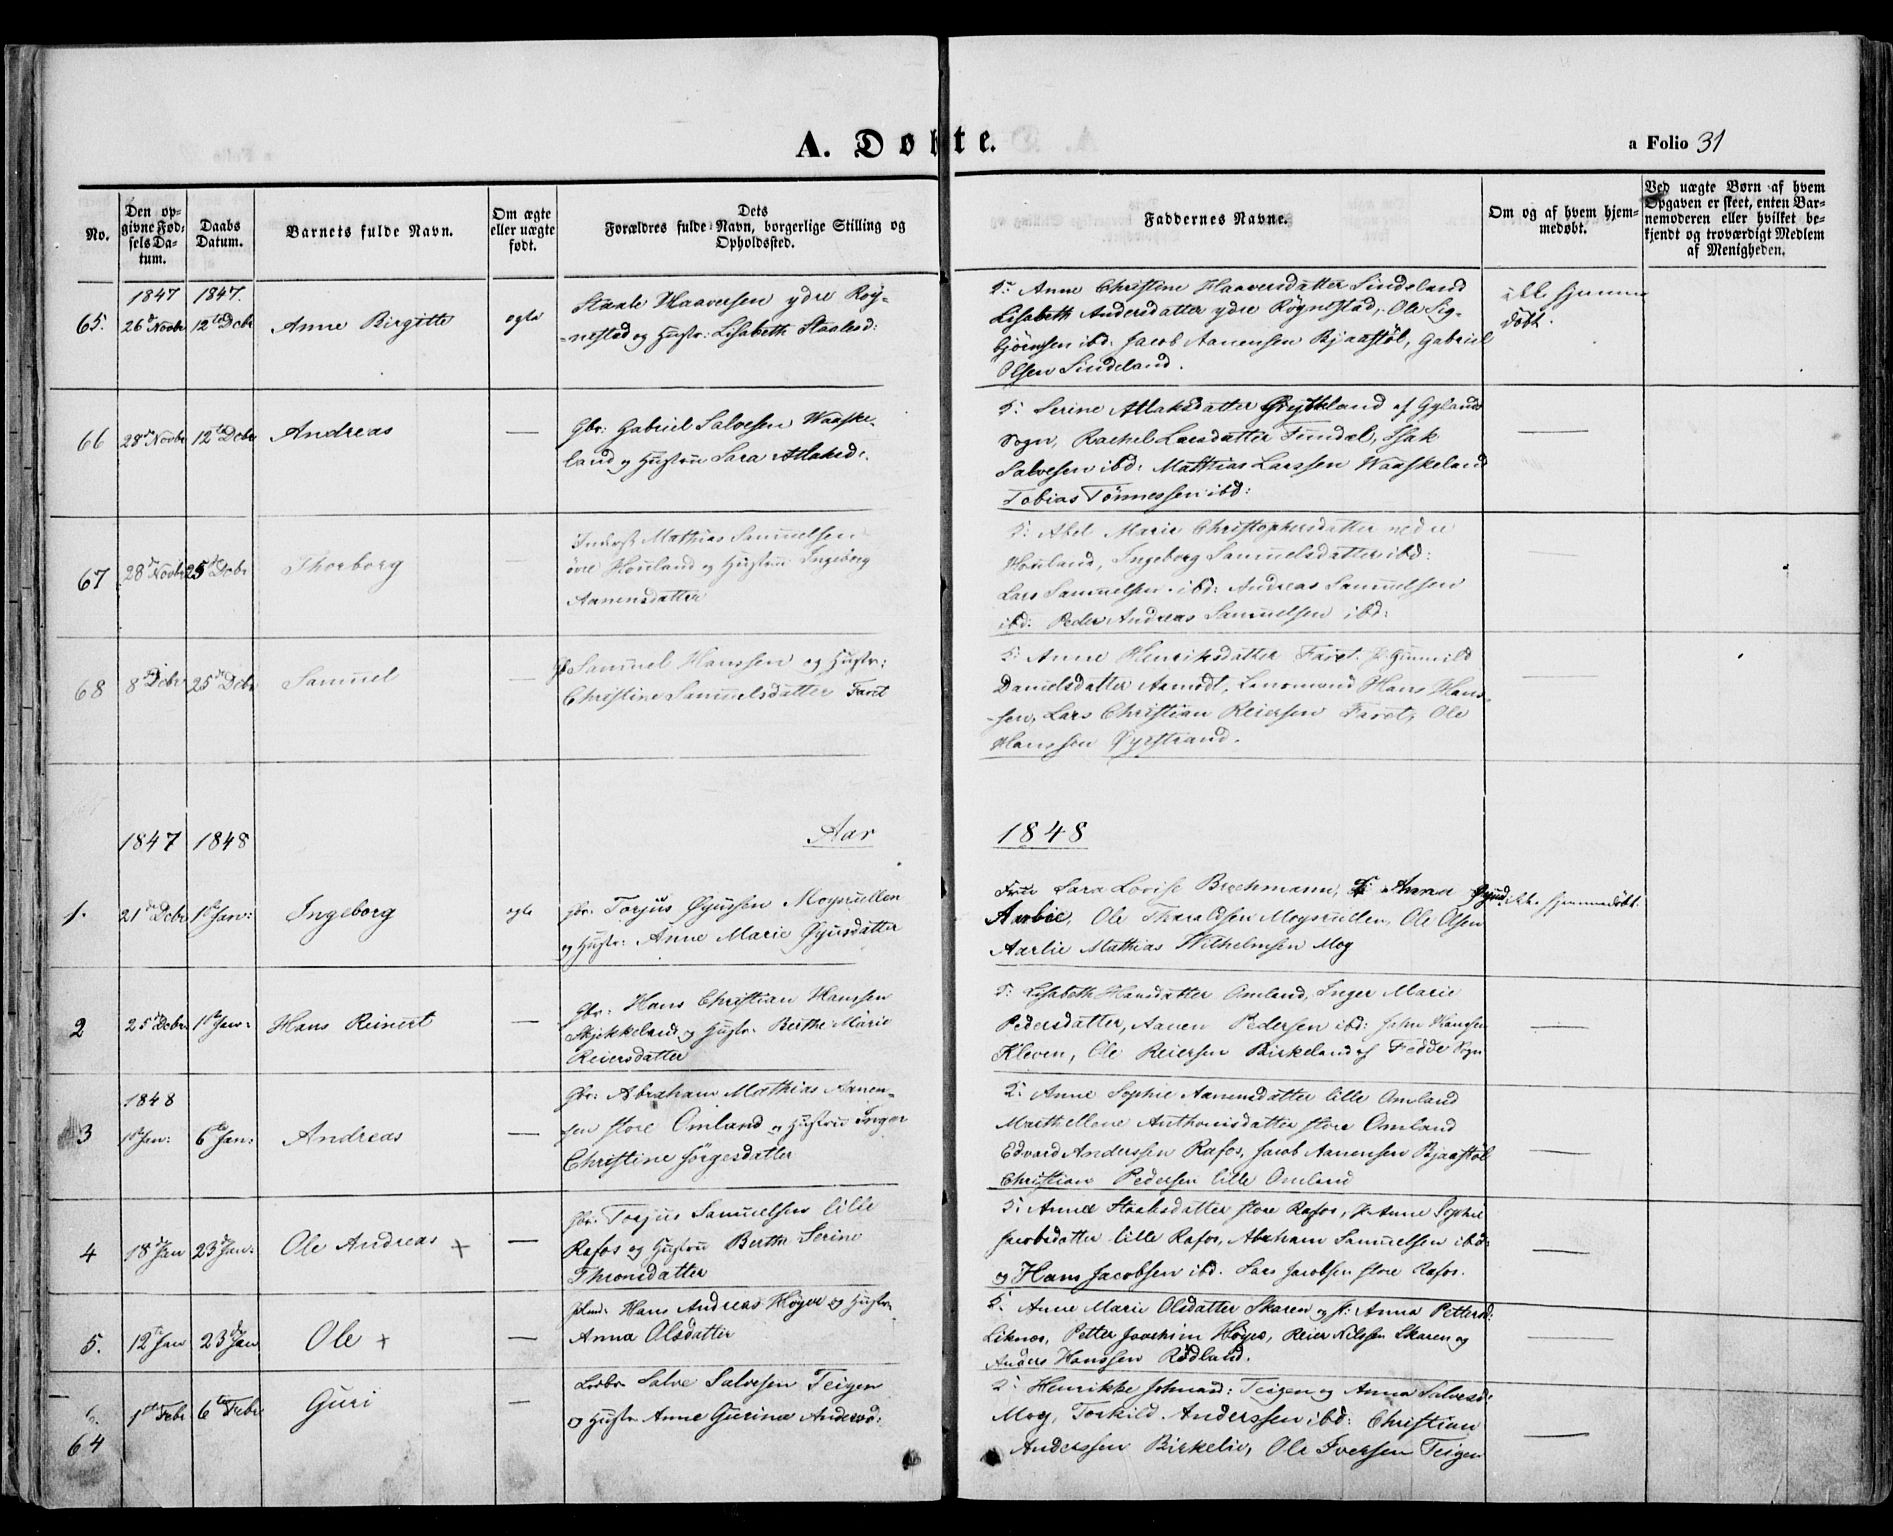 A. Døbte.
a Folio 31
No.
Den op-
givne Fød-
sels Da-
tum.
Daabs
Datum.
Barnets fulde Navn.
Om ægte
eller uægte
født.
Dets
Forældres fulde Navn, borgerlige Stilling og
Opholdssted.
Faddernes Navne.
Om og af hvem hjem-
medøbt.
Ved uægte Børn af hvem
Opgaven er skeet, enten Bar-
nemoderen eller hvilket be-
kjendt og troværdigt Medlem
af Menigheden.
1847 1847.
65. 26 Novbr 12te Dcbr Anne Birgitte egte
Staale Haaversen ydre Røy-
-nestad og Hustr: Lisabeth Staalesd:
F: Anne Christine Haaversdatter Sindeland
Lisabeth Andersdatter ydre Røgnestad, Ole Sig-
bjørnsen ibd: Jacob Aanensen Bjaastøl, Gabriel
Olsen Sindeland.
ikke hjemme
døbt.
66 28 Novbr 12te Dcbr Andreas —
Gbr: Gabriel Salvesen Waaske-
land og Hustru Sara Atlaksd:
F: Serine Atlaksdatter Grytteland af Gylands
Sogn, Rachel Larsdatter Sundal, Isak
Salvesen ibd: Matthias Larssen Waaskeland
Tobias Tönnessen ibd:
—
67 28 Novbr 25 Dcbr Thorborg —
Inderst Mathias Samuelsen
øvre Houland og Hustrue Ingeborg
Aanensdatter
F: Abel Marie Christophersdatter nedre
Houland, Ingeborg Samuelsdatter ibd:
Lars Samuelsen ibd: Andreas Samuelsen
ibd: Peder Andreas Samuelsen ibd:
—
68 8 Dcbr 25 Dcbr Samuel —
Samuel Hanssen og Hustr:
Christine Samuelsdatter Faret
F: Anne Henriksdatter Faret. P: Gunnild
Danielsdatter Aamodt, Lensmand Hans Hans-
-sen, Lars Christian Reiersen Faret, Ole
Hanssen Øyestrand.
—
1847 1848 Aar 1848
1. 21 Dcbr 1ste Jan: Ingeborg egte
Gbr: Torjus Øyussen Moysrullen
og Hustr: Anne Marie Øyusdatter
Frue Sara Lovise Brechmann, P: Anna Øyusd.
Aarlie, Ole Tharaldsen Moysrullen, Ole Olsen
Aarlie Mathias Wilhelmsen Moy
ikke hjemmedöbt.
2 25 Dcbr 1ste Jan: Hans Reinert —
Gbr: Hans Christian Hanssen
Skjekkeland og Hustr. Berthe Marie
Reiersdatter
F: Lisabeth Hansdatter Omland, Inger Marie
Pedersdatter, Aanen Pedersen ibd: John Hanssen
Kleven, Ole Reiersen Birkeland af Fedde Sogn
—
1848
3 1ste Jan: 6te Jan: Andreas —
Gbr: Abraham Mathias Aanen-
sen store Omland og Hustrue Inger
Christine Jörgesdatter
F: Anne Sophie Aanensdatter lille Omland
Marthellene Anthonisdatter store Omland
Edvard Anderssen Rafos, Jacob Aanensen Bjaastøl
Christian Pedersen lille Omland
—
4 18 Jan 23 Jan: Ole Andreas + —
Gbr: Torjus Samuelsen lille
Rafos og Hustru Berthe Serine
Thronsdatter
F: Anne Staalesdatter store Rafos, P: Anne Sophie
Jacobsdatter lille Rafos, Abraham Samuelsen ibd:
og Hans Jacobsen ibd. Lars Jacobsen store Rafos.
—
5. 12te Jan 23 Jan Ole + —
Hans Andreas Høyer og Hustr.
Anna Olsdatter
F: Anne Marie Olsdatter Skaren og P: Anna Pettersd:
Liknes, Petter Joachim Høyer, Reier Nilssen Skaren og
Anders Hanssen Rødland.
—
6. 1ste Febr 6te Febr Guri —
Salve Salvesen Teigen
og Hustr. Anne Gurina Andersd:
F: Henrikke Johnsd: Teigen og Anna Salvesd:
Moy, Torkild Anderssen ibd: Christian
Anderssen Birkelie, Ole Iversen Teigen
—
64